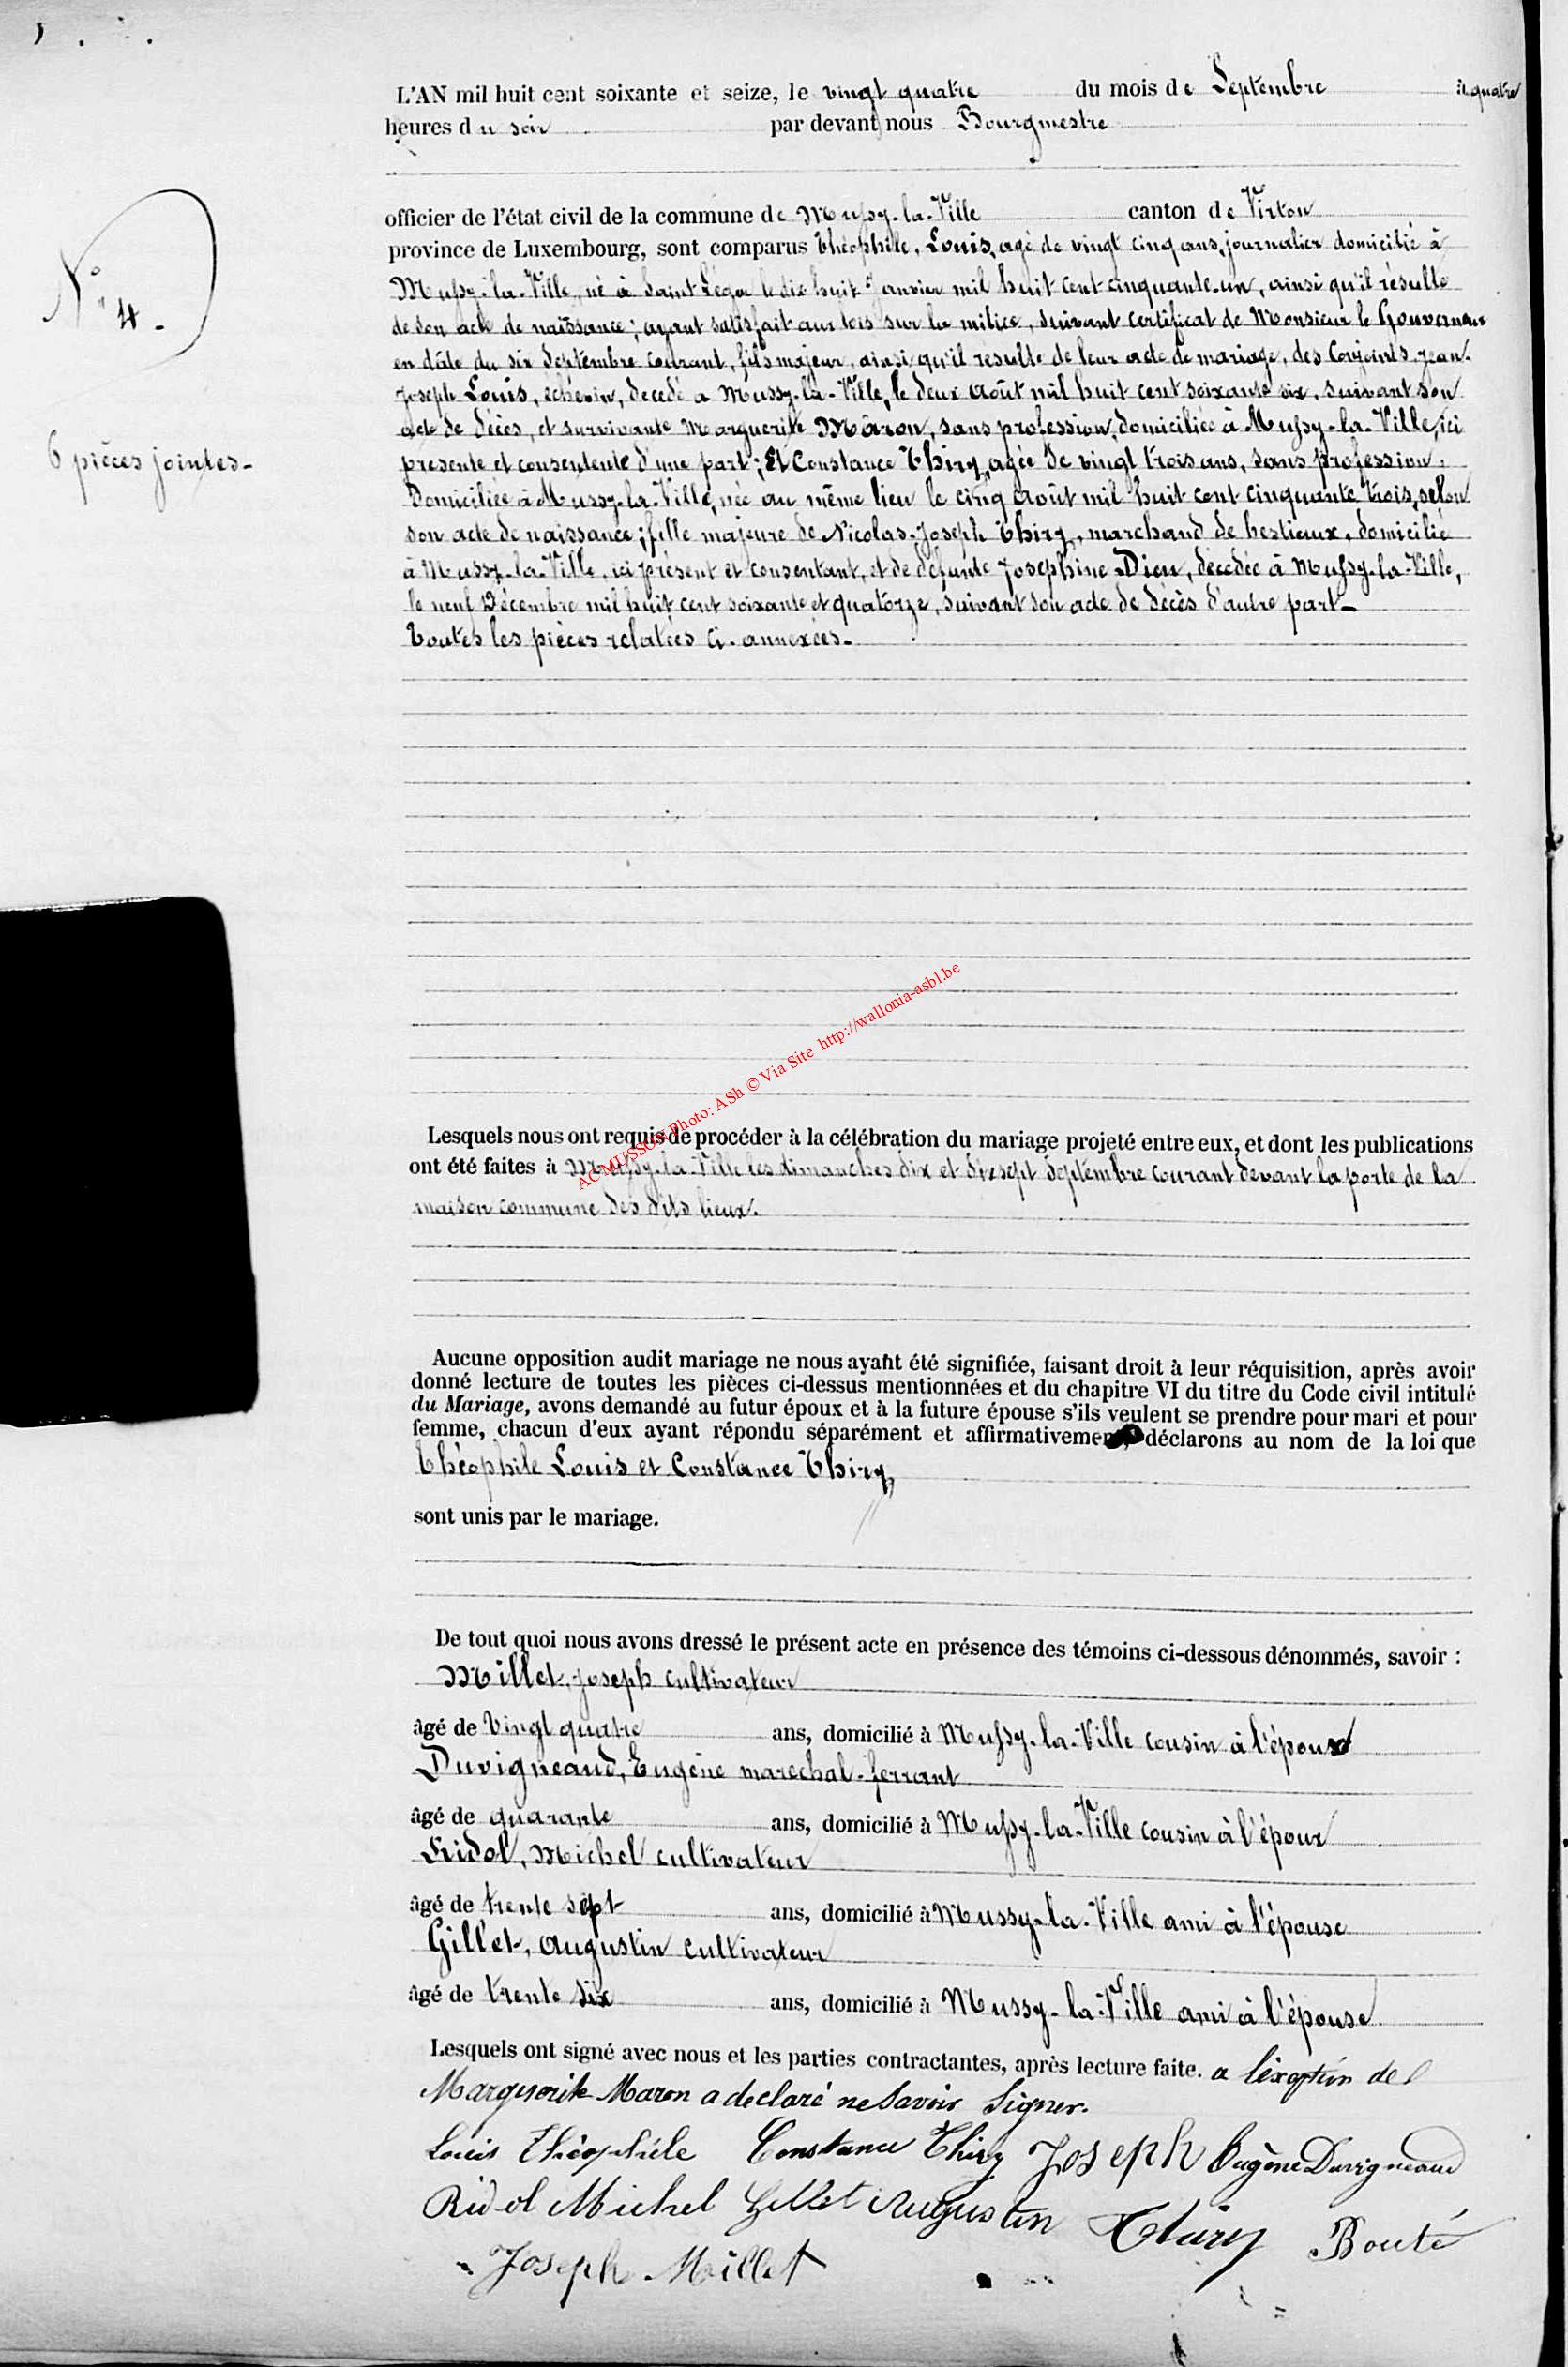 L'AN mil huit cent soixante et seize, le vingt quatre du mois de Septembre à quatre
heures du soir par devant nous Bourgmestre
officier de l'état civil de la commune de Mussy-la-Ville canton de Virton
N° 4.
province de Luxembourg, sont comparus Théophile, Louis, agé de vingt cinq ans, journalier domicilié à
Mussy-la-Ville, né à Saint Léger le dix huit Janvier mil huit cent cinquante-un, ainsi qu'il résulte
de son acte de naissance; ayant satisfait aux lois sur la milice, suivant certificat de Monsieur le Gouverneur
en date du six Septembre courant, fils majeur, ainsi qu'il resulte de leur acte de mariage, des Conjoints Jean-
Joseph Louis, échevin, decedé a Mussy-la-Ville, le deux Août mil huit cent soixante six, suivant son
acte de décès, et survivante Marguerite Maron, sans profession, domiciliée à Mussy-la-Ville, ici
6 pièces jointes-
presente et consentente d'une part; Et Constance Thiry, agée de vingt trois ans, sans profession,
domiciliée à Mussy-la-Ville, née au même lieu le cinq Août mil huit cent cinquante trois, selon
son acte de naissance; fille majeure de Nicolas-Joseph Thiry, marchand de bestiaux, domicilié
à Mussy-la-Ville, ici présent et consentant, et de defunte Josephine Dieu, décedée à Mussy-la-Ville,
le neuf Décembre mil huit cent soixante et quatorze, suivant son acte de décès d'autre part-
Toutes les pièces relatées ci-annexées.
AC MUSSON Photo: ASh © Via Site http://wallonia-asbl.be
Lesquels nous ont requis de procéder à la célébration du mariage projeté entre eux, et dont les publications
ont été faites à Mussy-la-Ville les dimanches dix et dix sept Septembre courant devant la porte de la
maison commune des dits lieux.
Aucune opposition audit mariage ne nous ayant été signifiée, faisant droit à leur réquisition, après avoir
donné lecture de toutes les pièces ci-dessus mentionnées et du chapitre VI du titre du Code civil intitulé
du Mariage, avons demandé au futur époux et à la future épouse s'ils veulent se prendre pour mari et pour
femme, chacun d'eux ayant répondu séparément et affirmativement, déclarons au nom de la loi que
Théophile Louis et Constance Thiry,
sont unis par le mariage.
De tout quoi nous avons dressé le présent acte en présence des témoins ci-dessous dénommés, savoir :
Millet, Joseph cultivateur
âgé de Vingt quatre ans, domicilié à Mussy-la-Ville cousin à l'époux
Duvigneaud, Eugène marechal-ferrant
âgé de quarante ans, domicilié à Mussy-la-Ville cousin à l'époux
Ridol, Michel cultivateur
âgé de trente sept ans, domicilié à Mussy-la-Ville ami à l'épouse
Gillet, Augustin cultivateur
âgé de trente six ans, domicilié à Mussy-la-Ville ami à l'épouse
Lesquels ont signé avec nous et les parties contractantes, après lecture faite. a l'exeptión de
Marguerite Maron a declaré ne Savoir Signer.
Louis Théophile Constance Thiry Joseph Eugène Duvigneaud
Ridol Michel Gillet Augustin Thiry Bouté
Joseph Millet